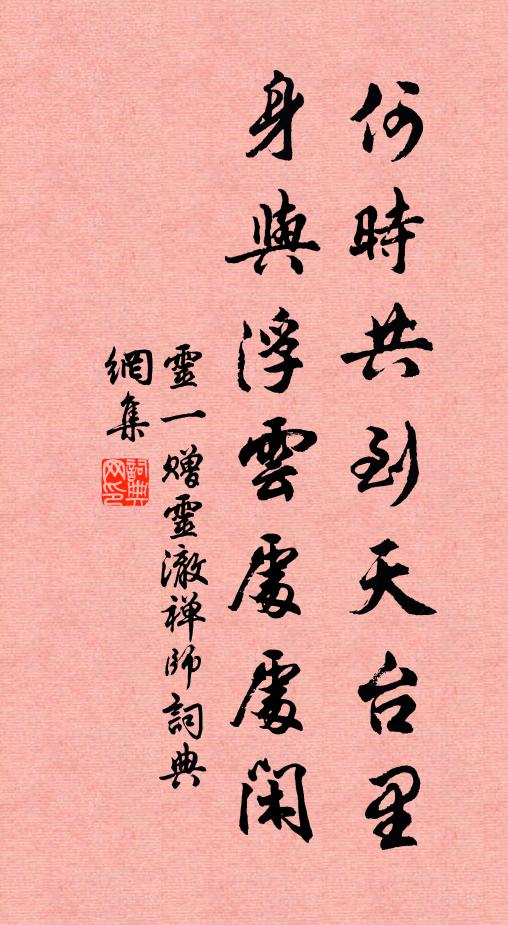 何時共到天台里
身與浮雲處處閑
靈一贈靈澈禅師詞典
網集
詞典
网印